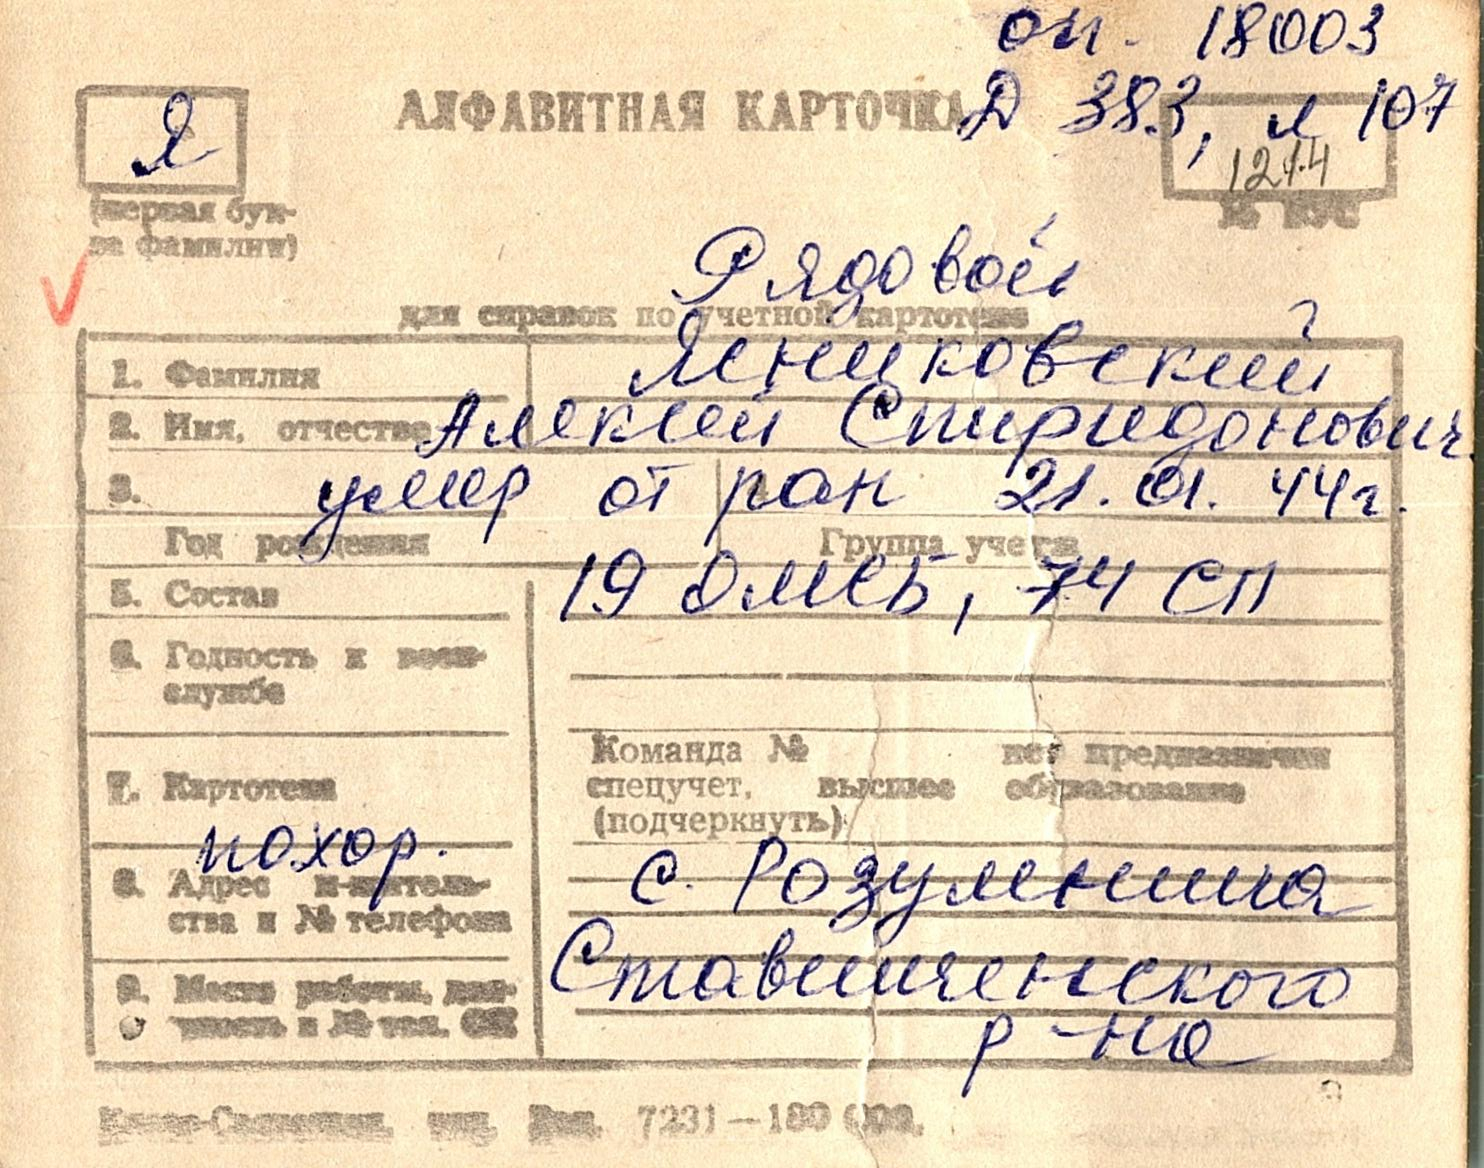 оп. 18003
Я
АЛФАВИТНАЯ КАРТОЧКА
Д 383, л 107
1214
(первая бук-
ва фамилии)
№ ВУС
Рядовой
для справок по учетной картотеке
?
1. Фамилия Ясниковский
2. Имя, отчество Алексей Спиридонович
3. умер от ран 21.01.44г.
Год рождения Группа учета
5. Состав 19 ОМСБ, 74 СП
6. Годность к воен-
службе
7. Картотека
Команда № нет предназначен
спецучет, высшее образование
(подчеркнуть)
похор.
8. Адрес и-житель-
ства и № телефона
с. Розумница
9. Место работы, дол-
жность и № тел. ОК
Ставищенского
р-на
7231—180 000.